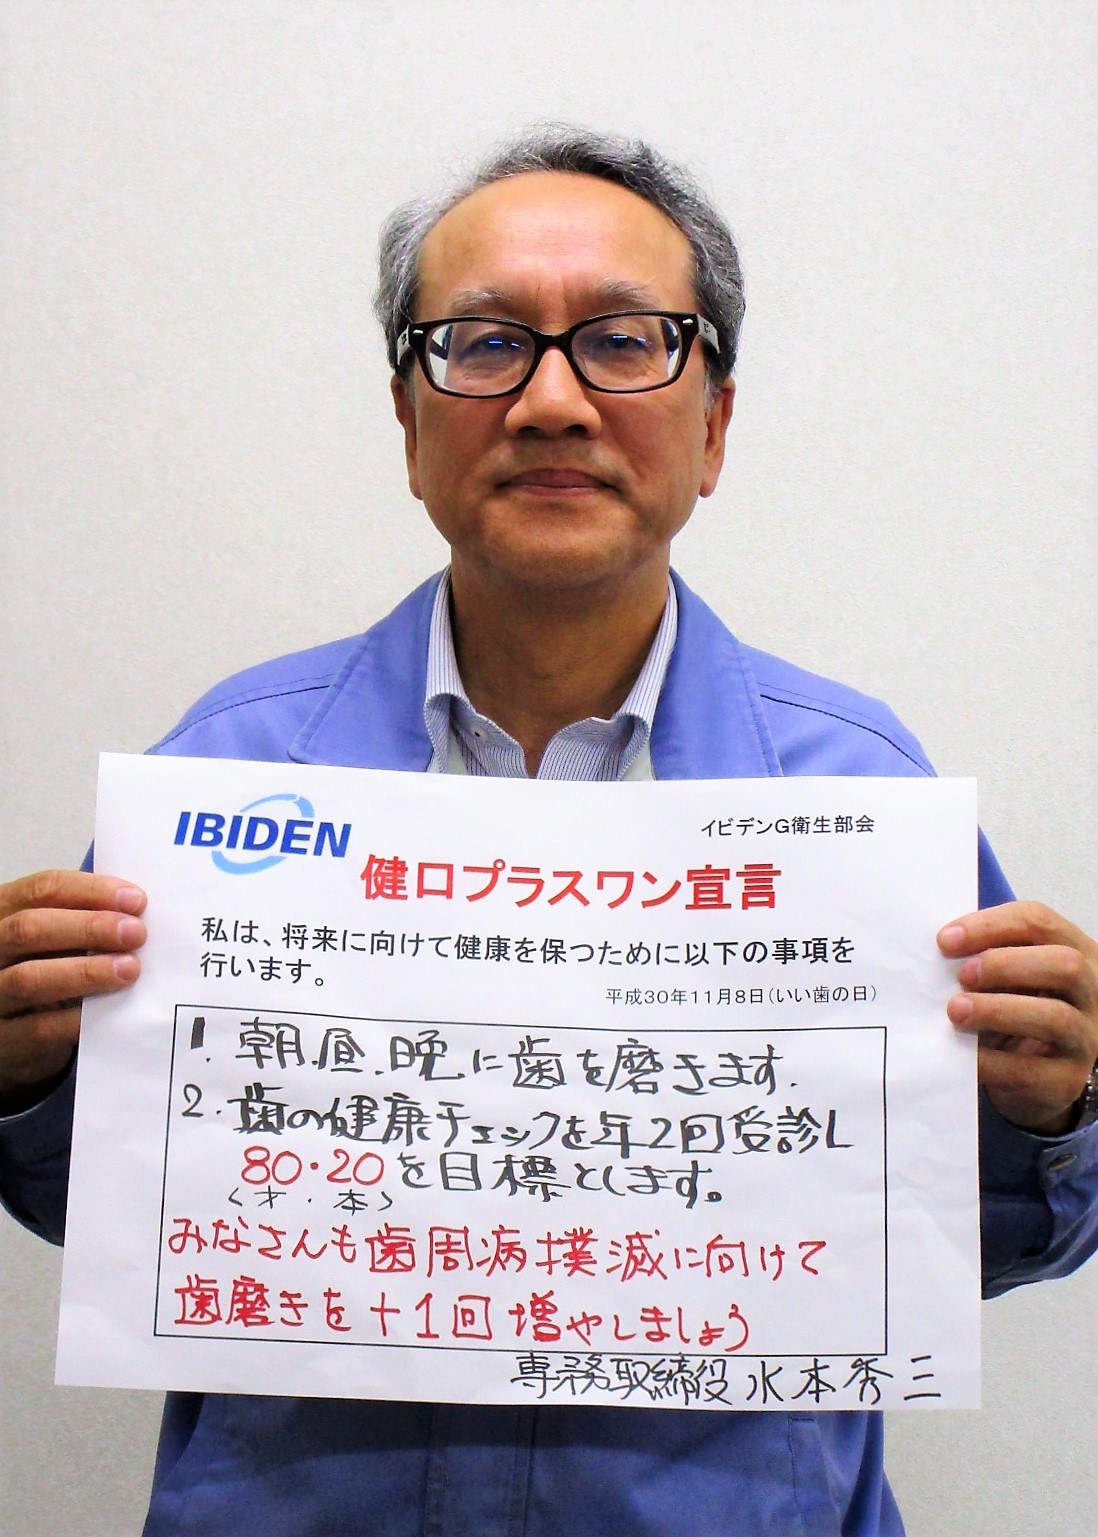 IBIDEN
イビデンG衛生部会
健口プラスワン宣言
私は、将来に向けて健康を保つために以下の事項を
行います。
平成30年11月8日(いい歯の日)
1. 朝.昼.晩に歯を磨きます.
2. 歯の健康チェックを年2回受診し
80・20を目標とします。
<才・本>
みなさんも歯周病撲滅に向けて
歯磨きを+1回増やしましょう
専務取締役 水本秀三